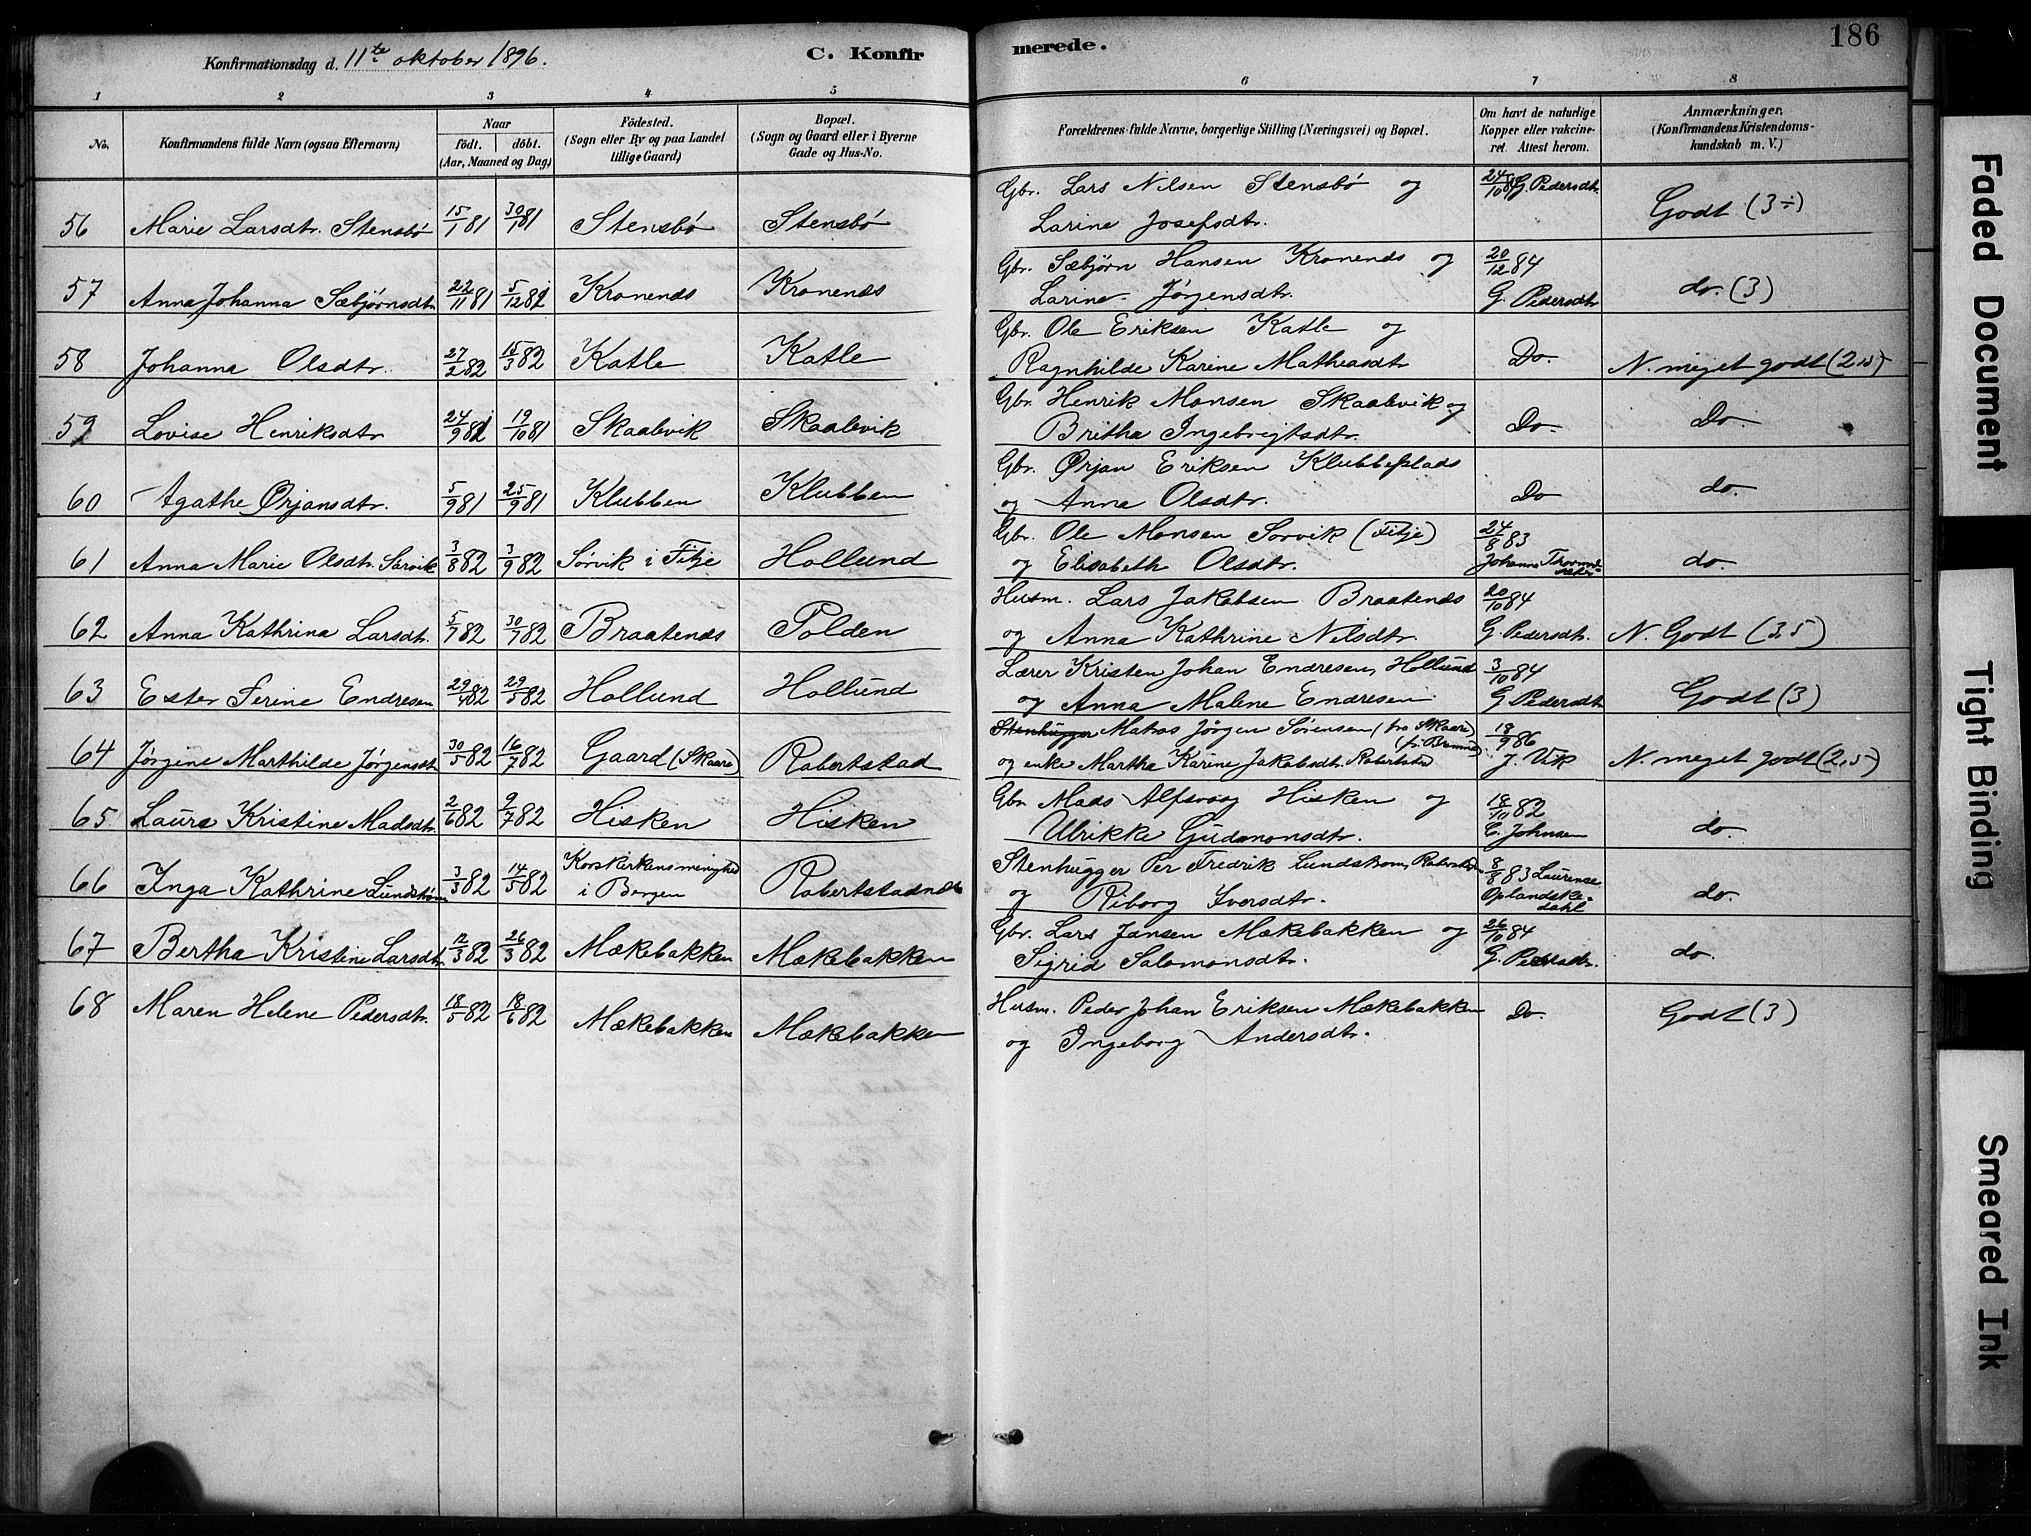 186
Konfirmationsdag d. 11te oktober 1896. C. Konfirmerede.
1 2 3 4 5 6 7 8
No. Konfirmandens fulde Navn (ogsaa Efternavn) Naar født. døbt. (Aar, Maaned og Dag) Fødested. (Sogn eller By og paa Landet tillige Gaard) Bopæl. (Sogn og Gaard eller i Byerne Gade og Hus-No. Forældrenes fulde Navne, borgerlige Stilling (Næringsvei) og Bopæl. Om havt de naturlige Kopper eller vakcineret. Attest herom. Anmærkninger. (Konfirmandens Kristendomskundskab m. V.)
56 Marie Larsdtr. Stensbø 15/1 81 30/1 81 Stensbø Stensbø Gbr. Lars Nilsen Stensbø og 24/10 84 G. Pedersdtr. Godt (3÷)
Larine Josefsdtr.
57 Anna Johanna Sæbjørnsdtr. 22/11 81 5/12 81 Kronends Kronends Gbr. Sæbjørn Hansen Kronends og 20/12 84 do. (3)
Larine Jørgensdtr. G. Pedersdtr
58 Johanna Olsdtr. 27/2 82 15/3 82 Katle Katle Gbr. Ole Eriksen Katle og
Ragnhilde Karine Matheasdtr Do. N. meget godt (2,5)
59 Lovise Henriksdtr 24/9 81 19/10 81 Skaalevik Skaalevik Gbr. Henrik Monsen Skaalevik og
Britha Ingebrigtsdtr. Do. Do.
60 Agathe Ørjansdtr. 5/9 81 25/9 81 Klubben Klubben Gbr. Ørjan Eriksen Klubbeplads
og Anna Olsdtr. Do do.
61 Anna Marie Olsdtr. Sørvik 3/8 82 3/9 82 Sørvik i Fitje Hollund Gbr. Ole Monsen Sørvik (Fitje) 24/8 83
og Elisabeth Olsdtr. Johanne do.
62 Anna Kathrina Larsdtr. 5/7 82 30/7 82 Braatends Polden Husm. Lars Jakobsen Braatends 20/10 84
og Anna Kathrine Nilsdtr. G. Pedersdtr. N. Godt (3,5)
63 Ester Serine Endresen 29/4 82 29/5 82 Hollund Hollund Lærer Kristen Johan Endresen, Hollund 3/10 84
og Anna Malene Endresen. G. Pedersdtr Godt (3)
64 Jørgine Marthilde Jørgensdtr 30/5 82 16/7 82 Gaard (Skaare) Robertstad Stenhugger Matros Jørgen Sørensen (fra Skaare) 18/9 86
og enke Martha Karine Jakobsdtr. Robertstad (fr. Bremnes) J. Vik N. meget godt (2,5)
65 Laura Kristine Madsdtr. 2/6 82 9/7 82 Hisken Hisken Gbr. Mads Alfsvaag Hisken og 18/10 82
Ulrikke Gudmonsdtr. C. Johnsen do.
66 Inga Kathrine Lundstrøm 3/3 82 14/5 82 Korskirkens menighed i Bergen Robertstadnes Stenhugger Per Fredrik Lundstrøm, Robertstad 8/8 83 Laurense
og Riborg Iversdtr. Oplandskedahl do.
67 Bertha Kristine Larsdtr 12/3 82 26/3 82 Mækebakken Mækebakken Gbr. Lars Jansen Mækebakken og 26/10 84
Sigrid Salomonsdtr. G. Pedersdtr. do.
68 Maren Helene Pedersdtr. 18/5 82 18/6 82 Mækebakken Mækebakken Husm. Peder Johan Eriksen Mækebakken Do Godt (3)
og Ingeborg Andersdtr.
Faded Document
Tight Binding
Smeared Ink